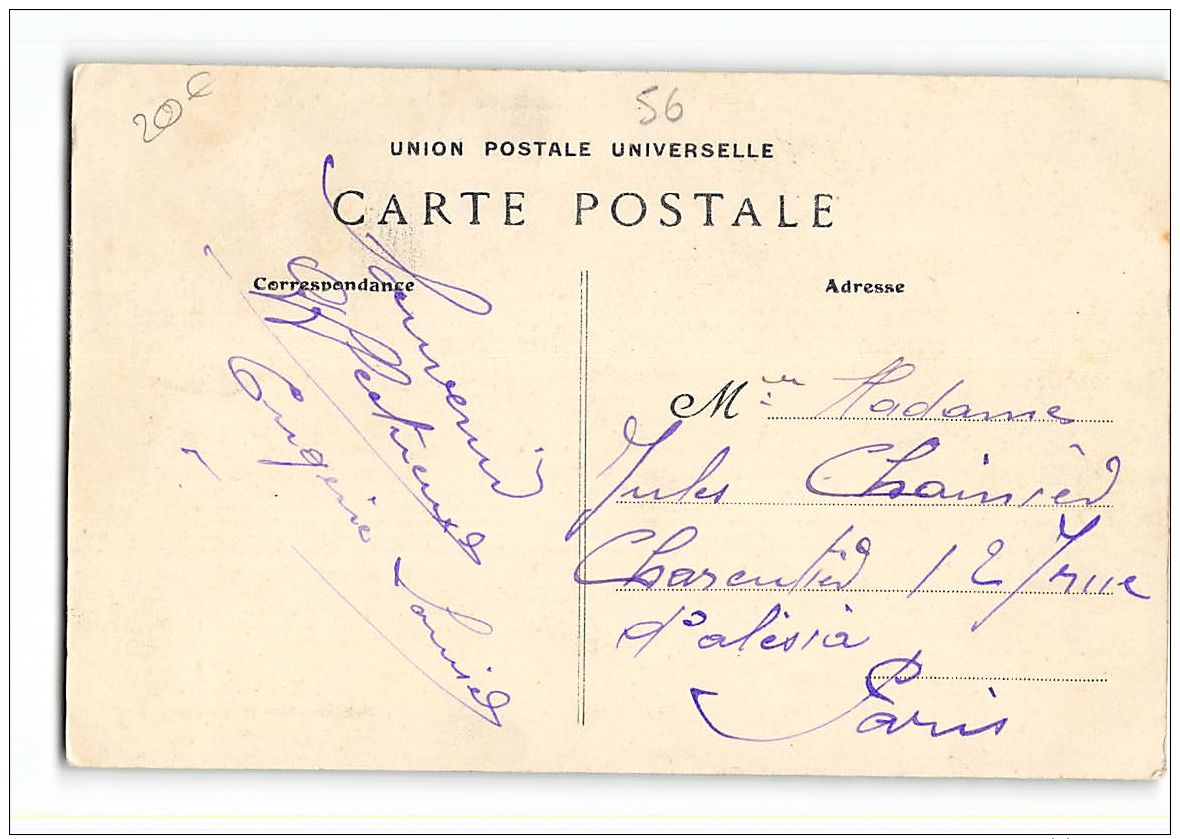 20€
56
UNION POSTALE UNIVERSELLE
CARTE POSTALE
Correspondance
Souvenir
Affectueux
Eugénie Louise
Adresse
M Madame
Jules
Charentier 12 rue
d'alésia
Paris